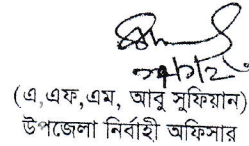 (এ,এফ,এম, আবু সুফিয়ান)
উপজেলা নির্বাহী অফিসার